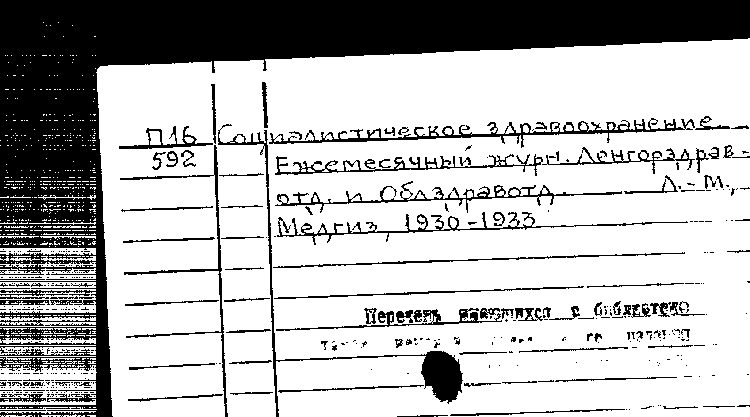 П16 Социалистическое здравоохранение.
592 Ежемесячный журн. Ленгорздрав-
отд. и Облздравотд. Л.-М.,
Медгиз, 1930-1933
Перечень имеющихся в библиотеке